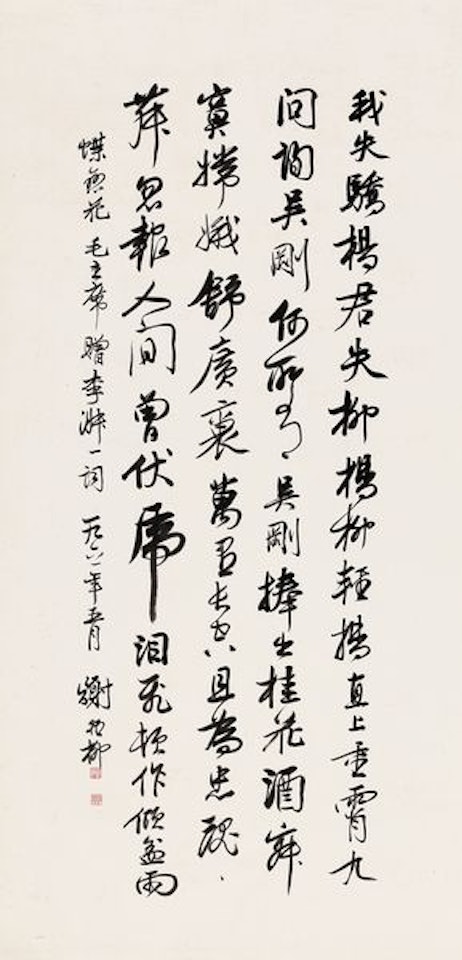 我失驕楊君失柳楊柳輕揚直上重霄九
問詢吳剛何所有、吳剛捧出桂花酒寂
寞嫦娥舒廣褎萬里長空且為忠魂、
舞忽報人間曾伏虎泪飛頓作傾盆雨
蝶戀花 毛主席贈李淑一詞 一九六一年五月 謝稚柳